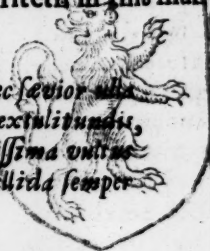 ec sævior ulla
extulit undis,
issima vultus
llida semper